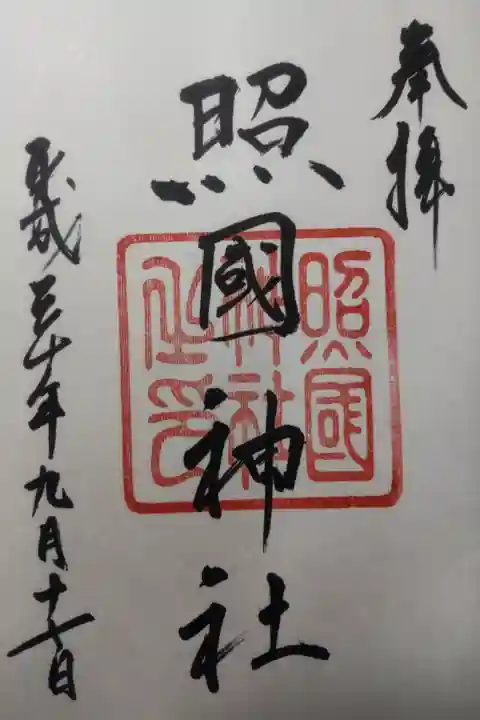 奉拝
照國神社
照國神社之印
平成三十年九月十七日